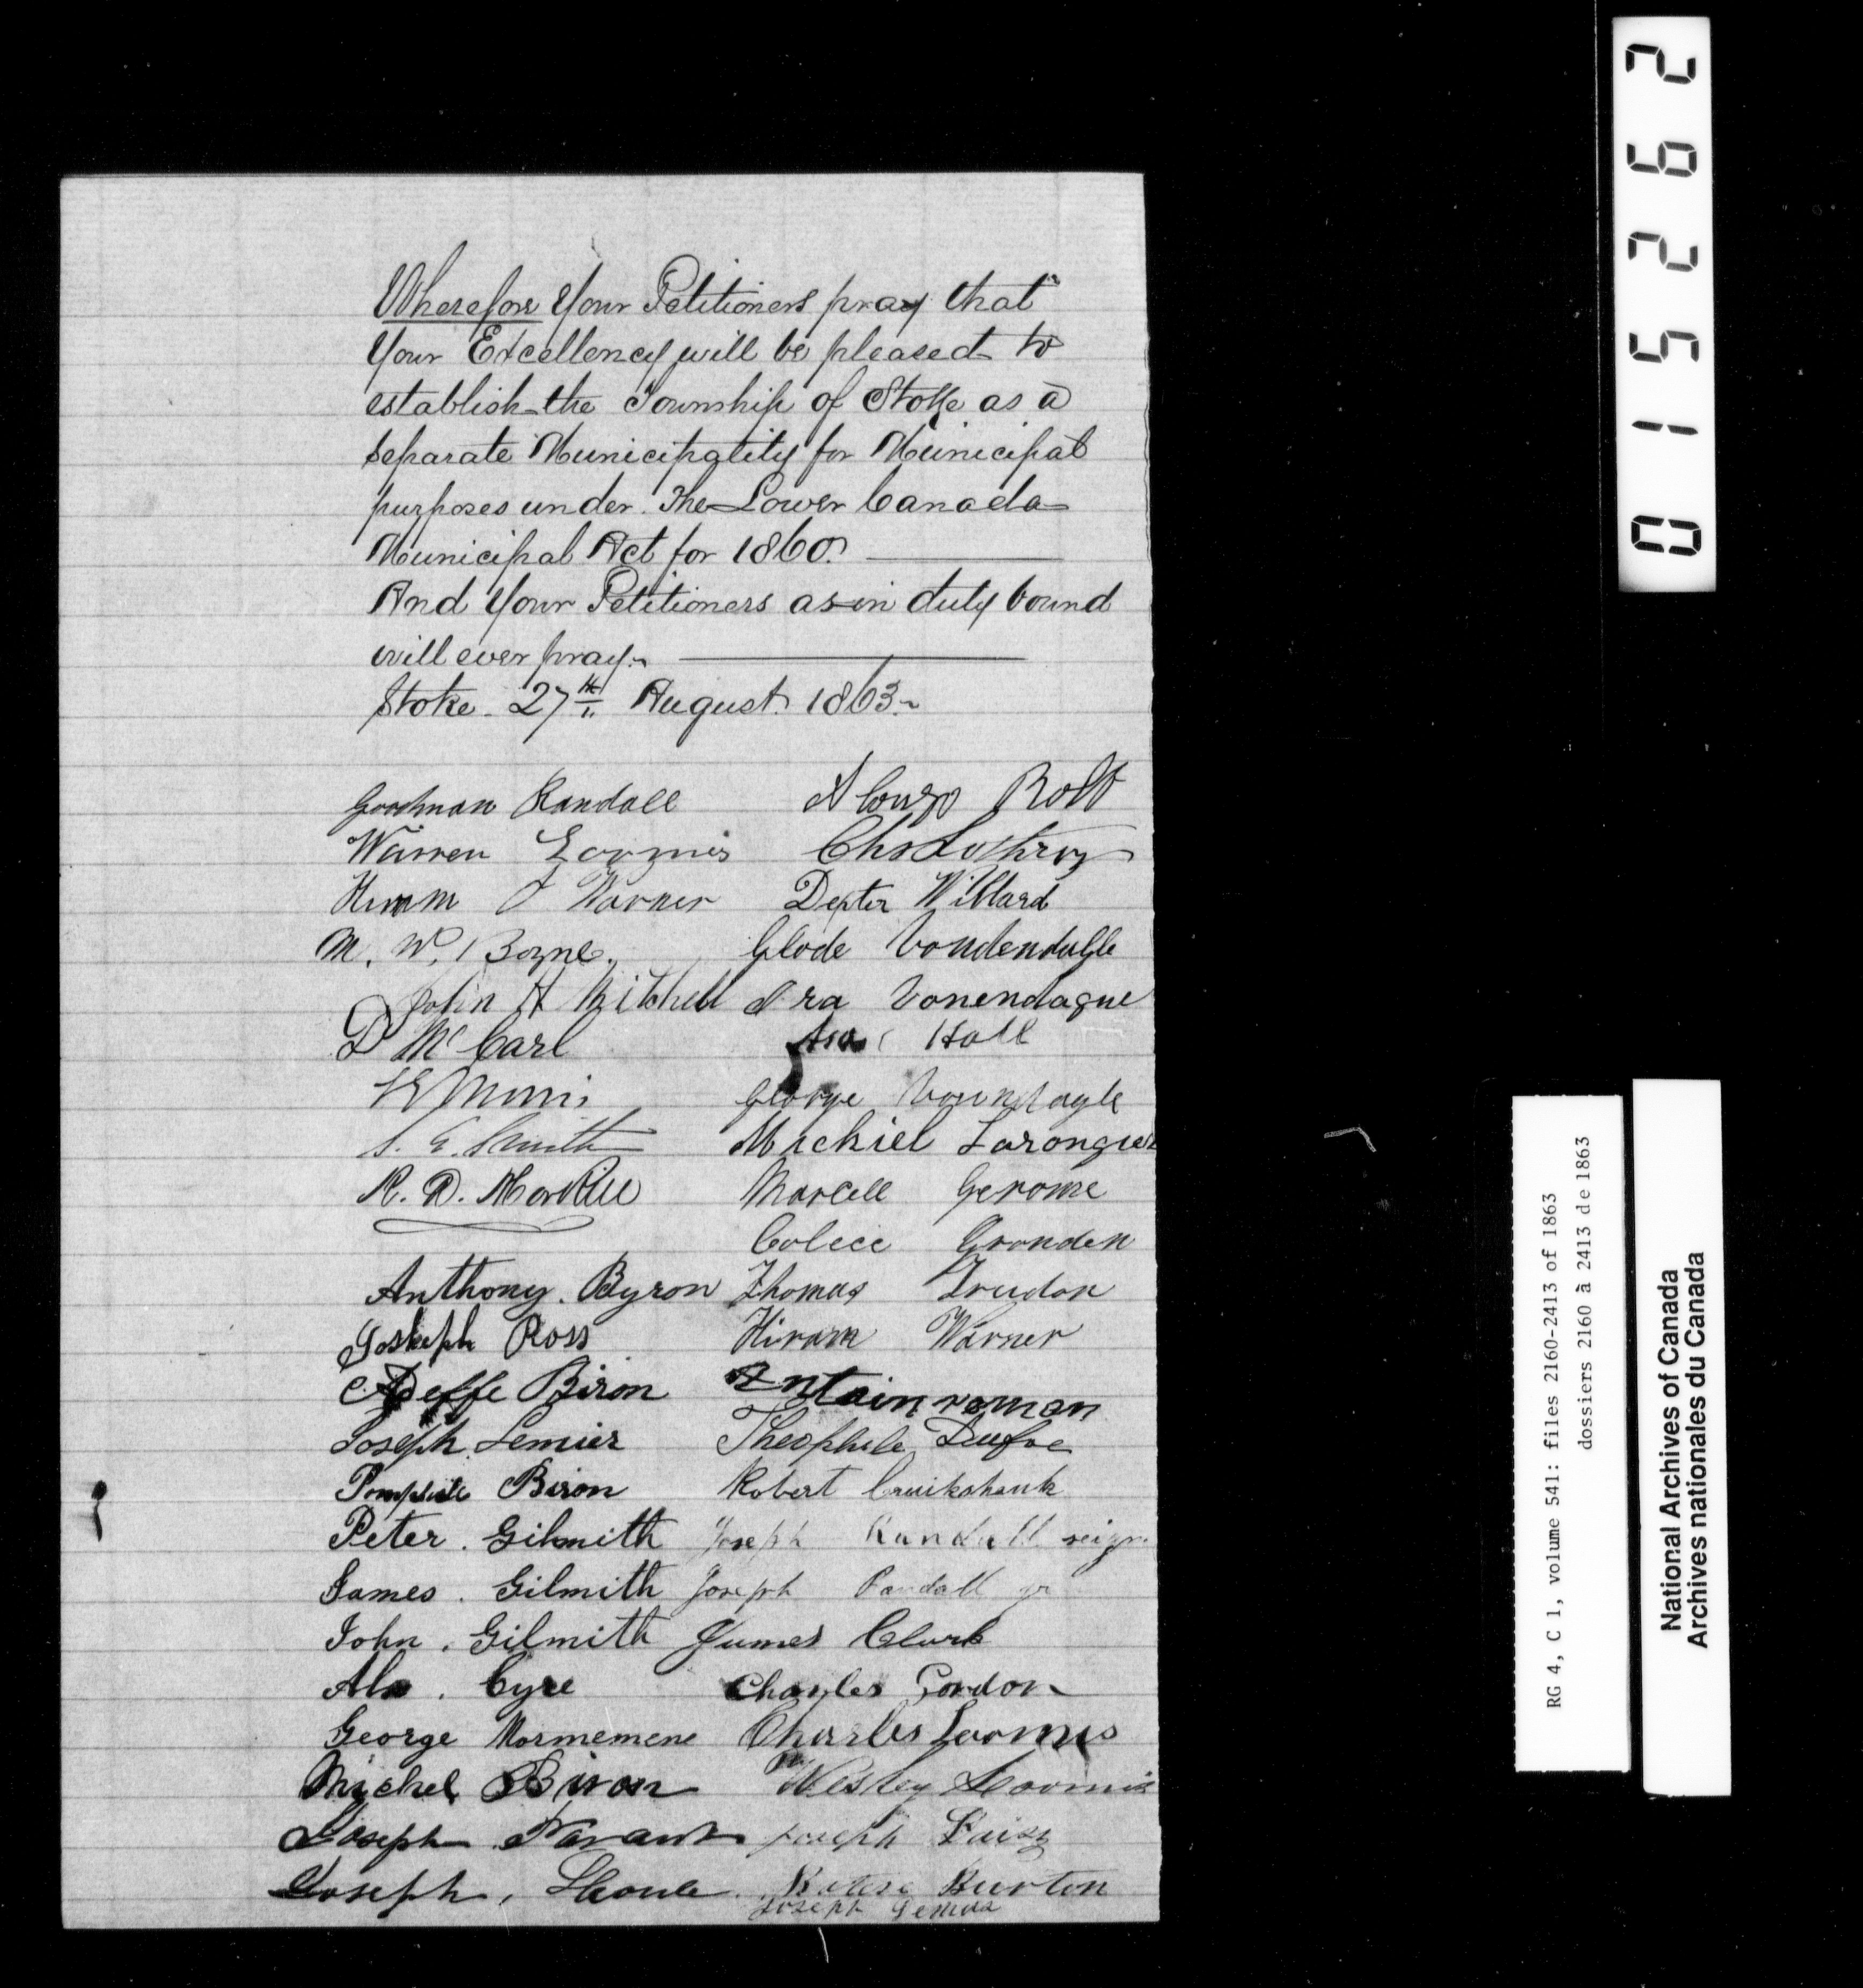 Wherefore Your Petitioners pray that
Your Excellency will be pleased to
establish the Township of Stoke as a
separate Municipality for Municipal
purposes under the Lower Canada
Municipal Act for 1860.
And Your Petitioners as in duty bound
will ever pray.
Stoke 27th August 1863.
Goodman Randall
Warren Loomis
Hiram J Warner
M. W.
John H Mitchell
D McCarl
S. G. Smith
R. D. Morkill
Anthony. Byron
Josheph Ross
Biron
Joseph Lemier
Biron
Peter. Gilmith
James. Gilmith
John. Gilmith
Cyre
George Mormemene
Michel Biron
Joseph
Joseph,
Alonzo
Chs Lothrop
Dexter Willard
Glode Vondendugle
Ira Vonendague
Asa Hall
George
Michiel
Marcell Gerome
Gronden
Thomas Trudon
Hiram Warner
Antain roman
Theophile
Robert Cruikshank
Joseph Randall
Joseph Randall jr
James Clark
Charles Gordon
Charles Loomis
Wesley Loomis
Joseph
Burton
Joseph
015262
RG 4, C 1, volume 541: files 2160-2413 of 1863
dossiers 2160 à 2413 de 1863
National Archives of Canada
Archives nationales du Canada